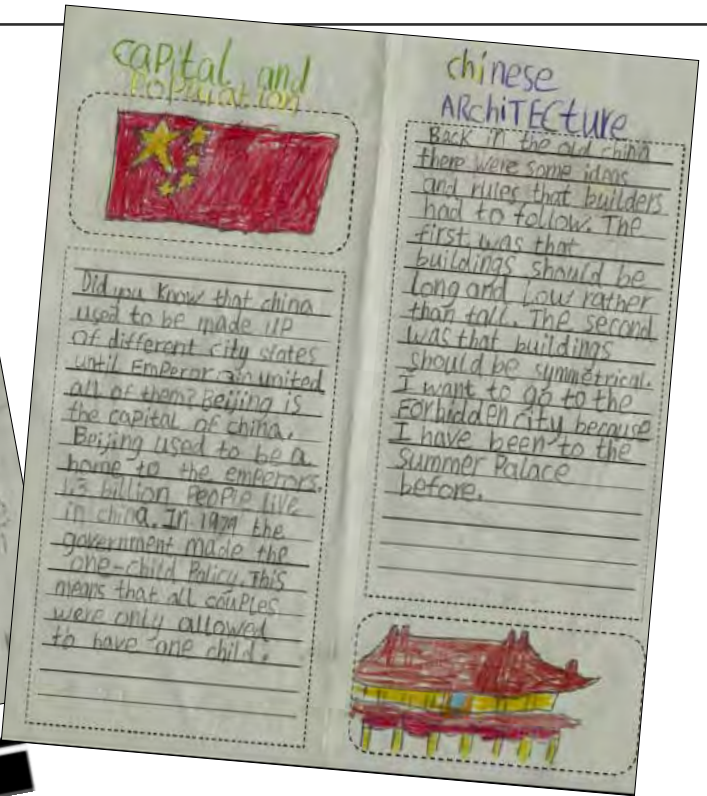 capital and
population
Did you know that china
used to be made up
of different city states
until Emperor qin united
all of them? Beijing is
the capital of china.
Beijing used to be a
home to the emperors.
1.3 billion People live
in china. In 1979 the
government made the
one-child Policy. This
means that all couples
were only allowed
to have one child.
chinese
ARchiTECture
Back in the old china
there were some ideas
and rules that builders
had to follow. The
first was that
buildings should be
long and Low rather
than tall. The second
was that buildings
should be symmetrical.
I want to go to the
Forbidden city because
I have been to the
Summer Palace
before.